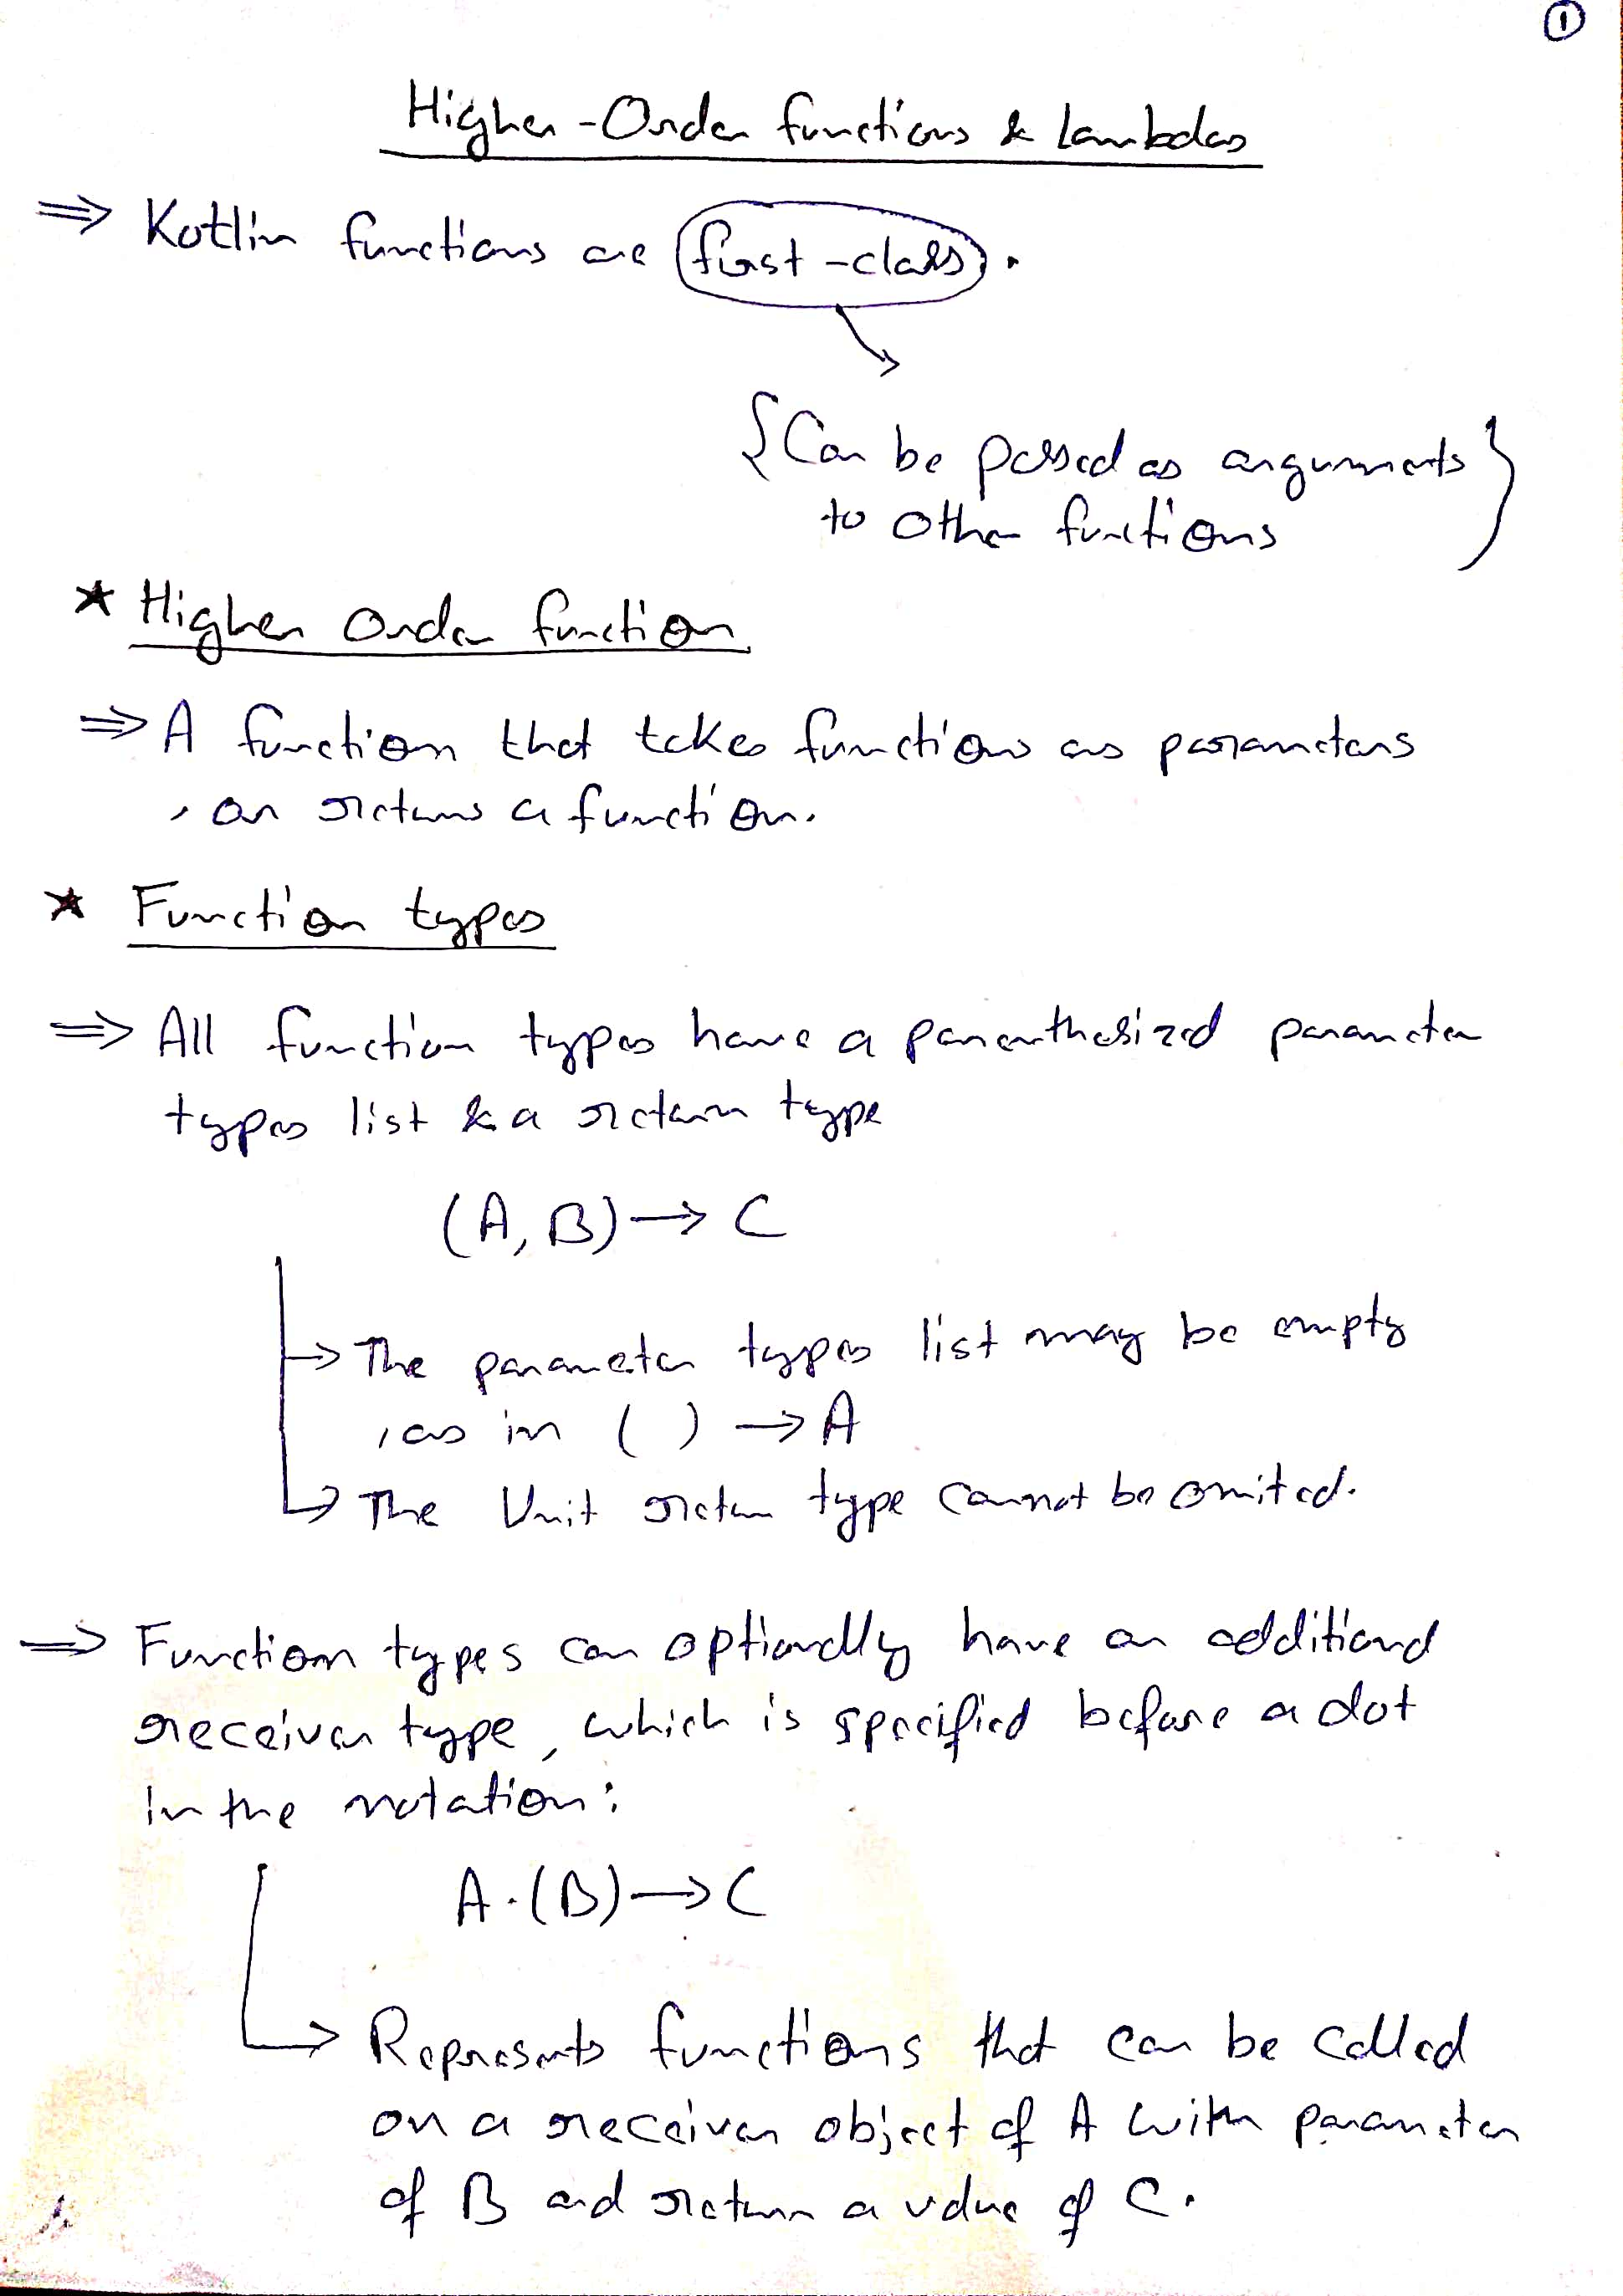 ①
Higher-Order functions & Lambdas
⇒ Kotlin functions are first-class.
{Can be passed as arguments
to other functions}
* Higher Order function
⇒ A function that takes functions as parameters
, or returns a function.
* Function types
⇒ All function types have a parenthesized parameter
types list & a return type
(A, B) → C
→ The parameter types list may be empty
, as in ( ) → A
→ The Unit return type cannot be omited.
⇒ Function types can optionally have an additional
receiver type, which is specified before a dot
in the notation:
A.(B) → C
→ Represents functions that can be called
on a receiver object of A with parameter
of B and return a value of C.